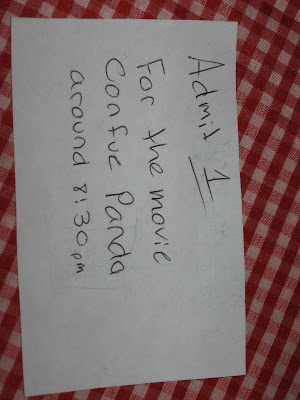 Admit 1
For the movie
Confue Panda
around 8:30 pm